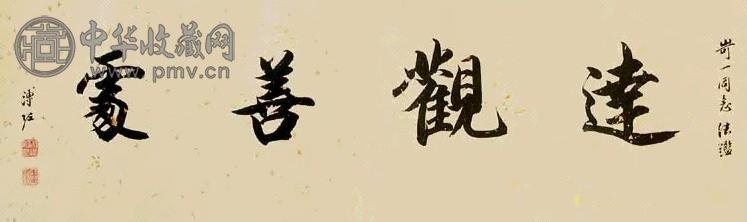 中华收藏网
www.pmv.cn
一同志法鑑
達觀善處
溥佐